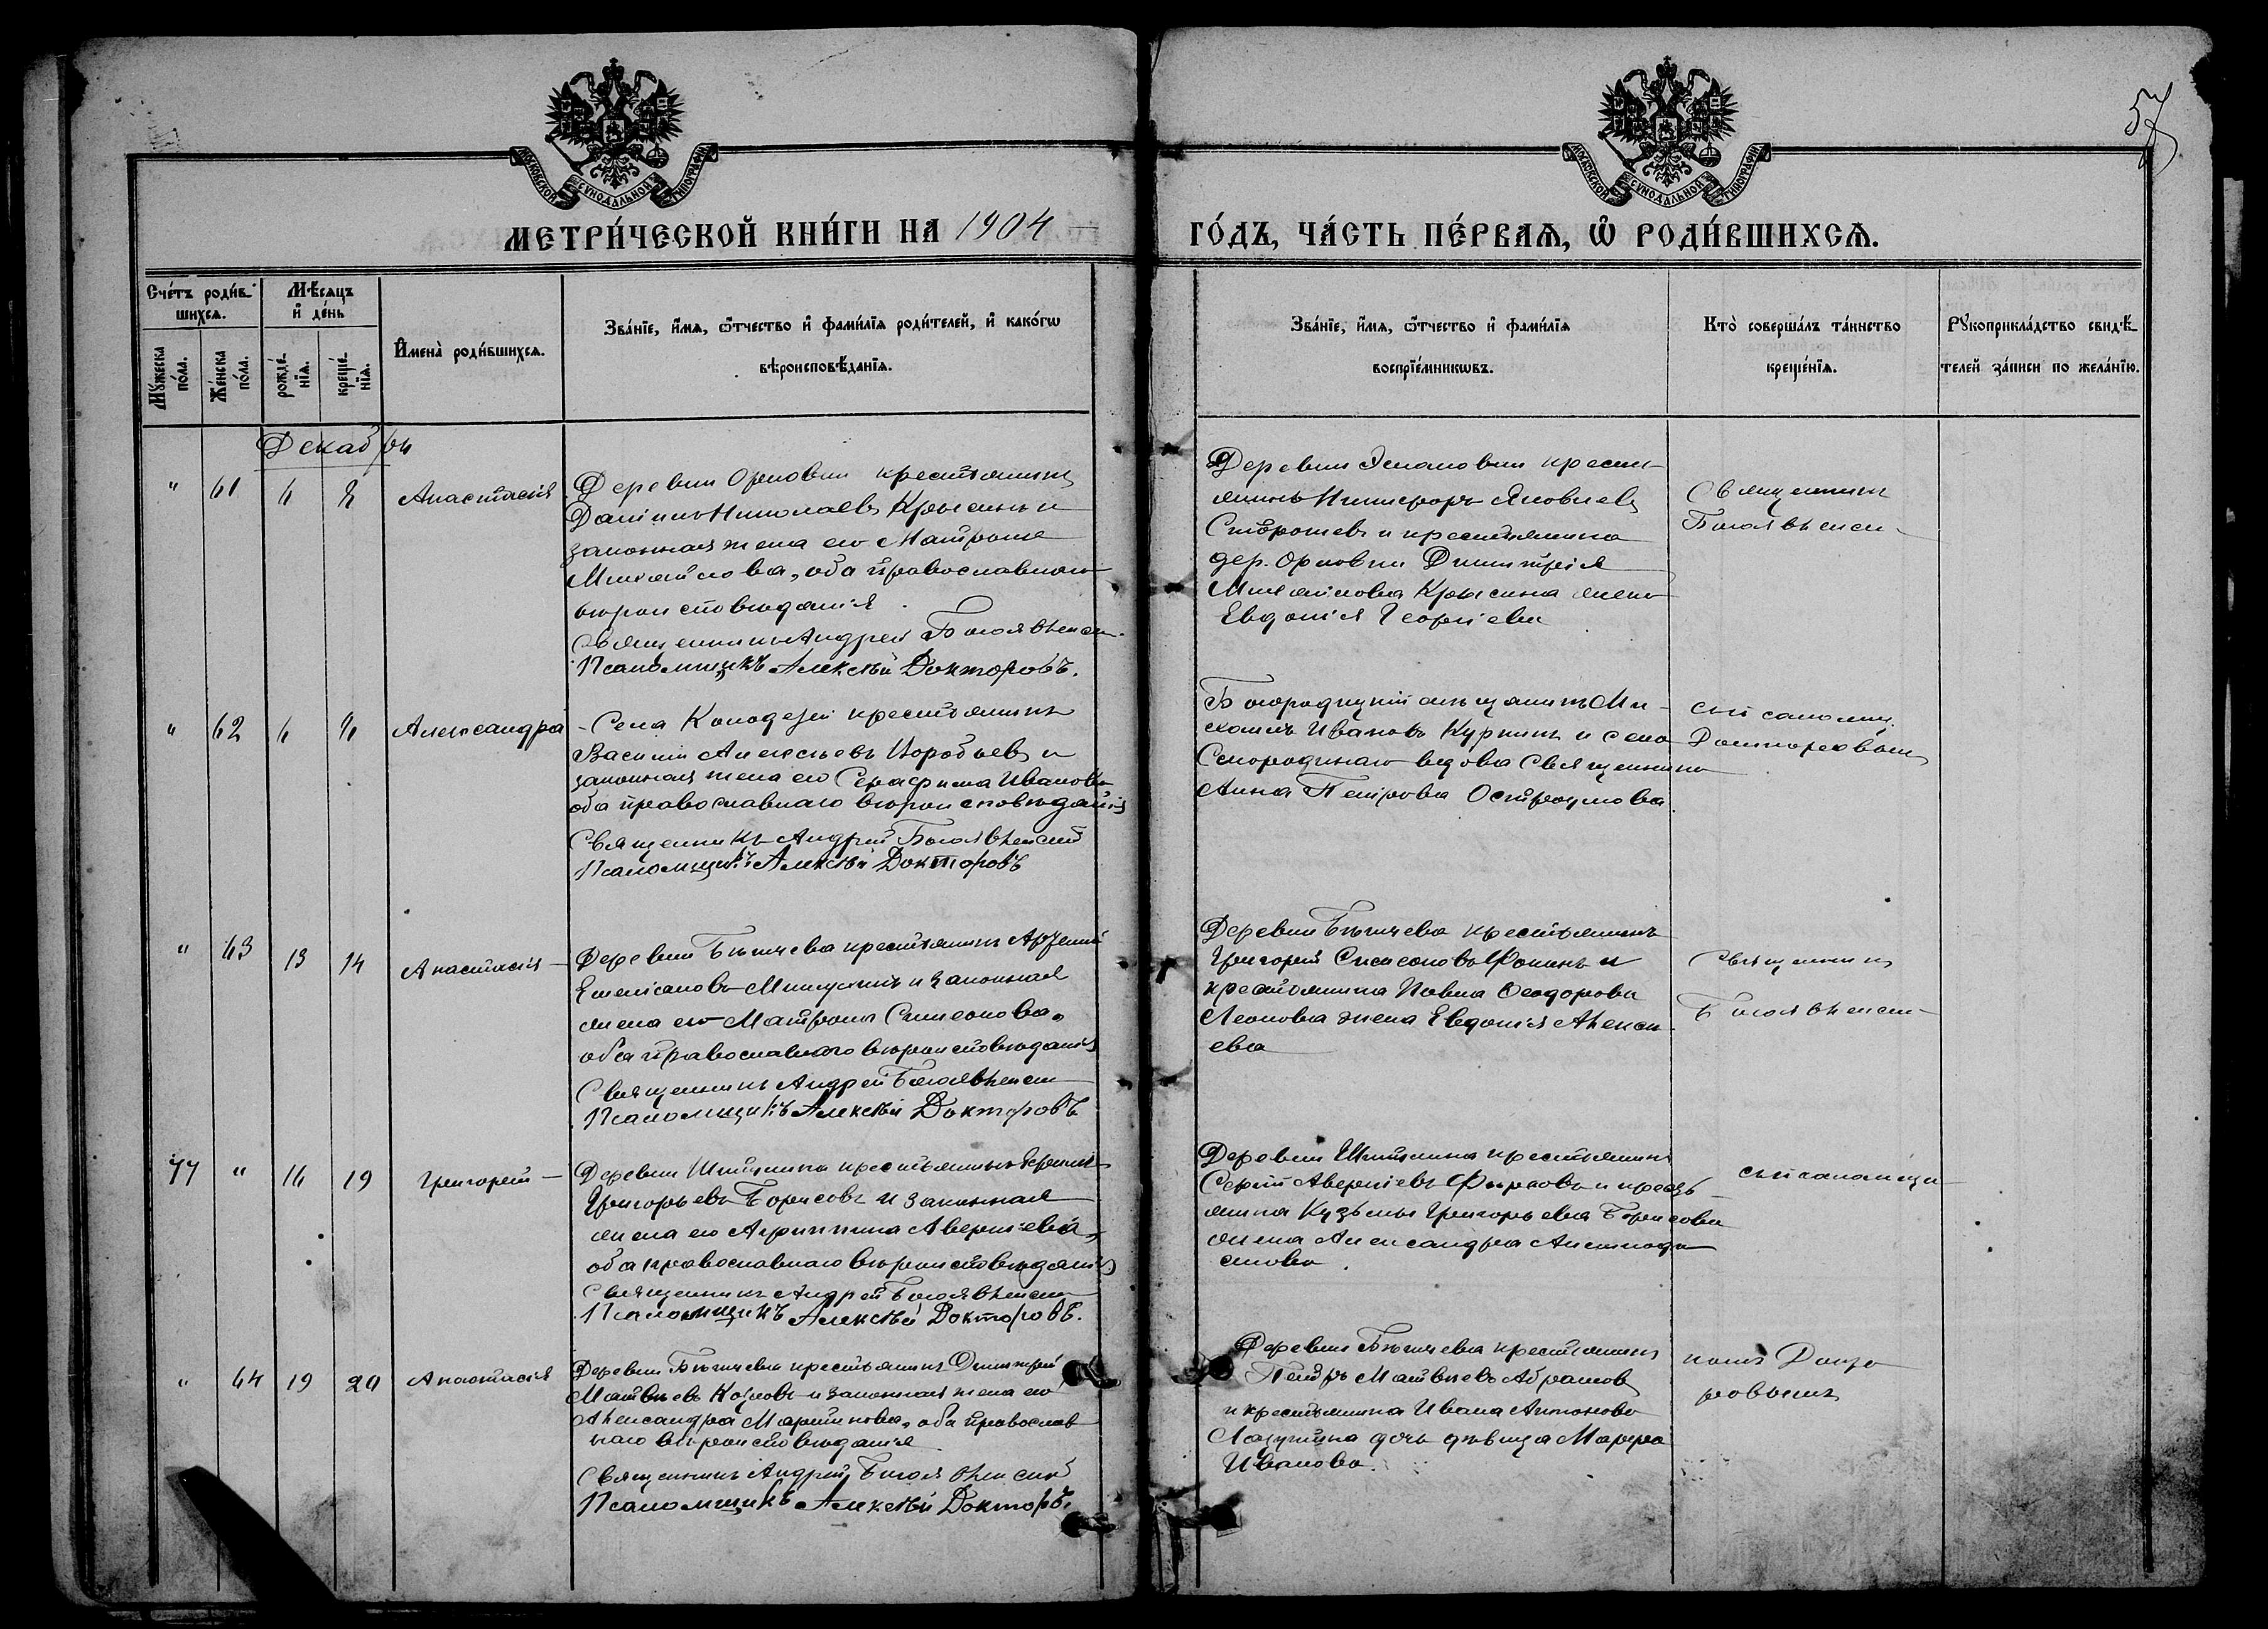 57
МОСКОВСКОЙ СѴНОДАЛЬНОЙ ТИПОГРАФІИ
МОСКОВСКОЙ СѴНОДАЛЬНОЙ ТИПОГРАФІИ
МЕТРИ́ЧЕСКОЙ КНИ́ГИ НА 1904
ГО́ДЪ, ЧА́СТЬ ПЕ́РВАѦ, Ѡ҆ РОДИ́ВШИХСѦ.
Сче́тъ роди́в-
шихсѧ.
Мѣ́сѧцъ
и҆ де́нь
Мꙋ́жеска
по́ла.
Же́нска
по́ла.
рожде́-
нїѧ.
креще́-
нїѧ.
И҆мена̀ роди́вшихсѧ.
Зва́нїе, и҆́мѧ, ѻ҆́тчество и҆ фами́лїѧ роди́телей, и҆ како́гѡ
вѣроисповѣ́данїѧ.
Зва́нїе, и҆́мѧ, ѻ҆́тчество и҆ фами́лїѧ
воспрїе́мникѡвъ.
Кто̀ соверша́лъ та́инство
креще́нїѧ.
Рꙋкоприкла́дство свидѣ́-
телей за́писи по жела́нїю.
Декабрь
" 61 6 8 Анастасія
Деревни Орловки крестьянинъ
Даніилъ Николаевъ Крысинъ и
законная жена его Матрона
Михайлова, оба православнаго
вѣроисповѣданія.
Священникъ Андрей Богоявленскій
Псаломщикъ Алексѣй Докторовъ.
Деревни крест-
янинъ Никифоръ Яковлевъ
и крестьянина
дер. Орловки Димитрія
Крысина жена
Евдокія Георгіева
Священникъ
Богоявленскі
" 62 Александра
Села Колодезей крестьянинъ
Василій Алексѣевъ Воробьевъ и
законная жена его Серафима Иванова
оба православнаго вѣроисповѣданія
Священникъ Андрей Богоявленскій
Псаломщикъ Алексѣй Докторовъ
Богородицкій мѣщанинъ Ми-
хаилъ Ивановъ Куркинъ и села
вдова священника
Анна Петрова Остроумова
съ псаломщ.
Докторовымъ
" 63 13 14 Анастасія
Деревни Бѣгичева крестьянинъ
и законная
жена его Матрона Симеонова,
оба православнаго вѣроисповѣданія
Священникъ Андрей Богоявленскі
Псаломщикъ Алексѣй Докторовъ
Деревни Бѣгичева крестьянинъ
Григорій Симеоновъ Фокинъ и
крестьянина Павла Ѳеодорова
Леонова жена Евдокія Алексѣ-
ева
Священникъ
Богоявленскі
77 " 16 19 Григорій
Деревни крестьянинъ
Григорьевъ Борисовъ и законная
жена его Агриппина Аверкіева,
оба православнаго вѣроисповѣданія
Священникъ Андрей Богоявленскі
Псаломщикъ Алексѣй Докторовъ.
Деревни крестьянинъ
Сергій Аверкіевъ и кресть-
янина Кузьмы Григорьева Борисова
жена Александра
съ псаломщи-
" 64 19 20 Анастасія
Деревни Бѣгичева крестьянинъ Димитрій
Матвѣевъ Козловъ и законная жена его
Александра Мартинова, оба православ
наго вѣроисповѣданія
Священникъ Андрей Богоявленскій
Псаломщикъ Алексѣй Докторъ.
Деревни Бѣгичева крестьянинъ
Петръ Матвѣевъ Абрамовъ
и крестьянина Ивана Антонова
дочь дѣвица Марфа
Иванова.
комъ Докто
ровымъ